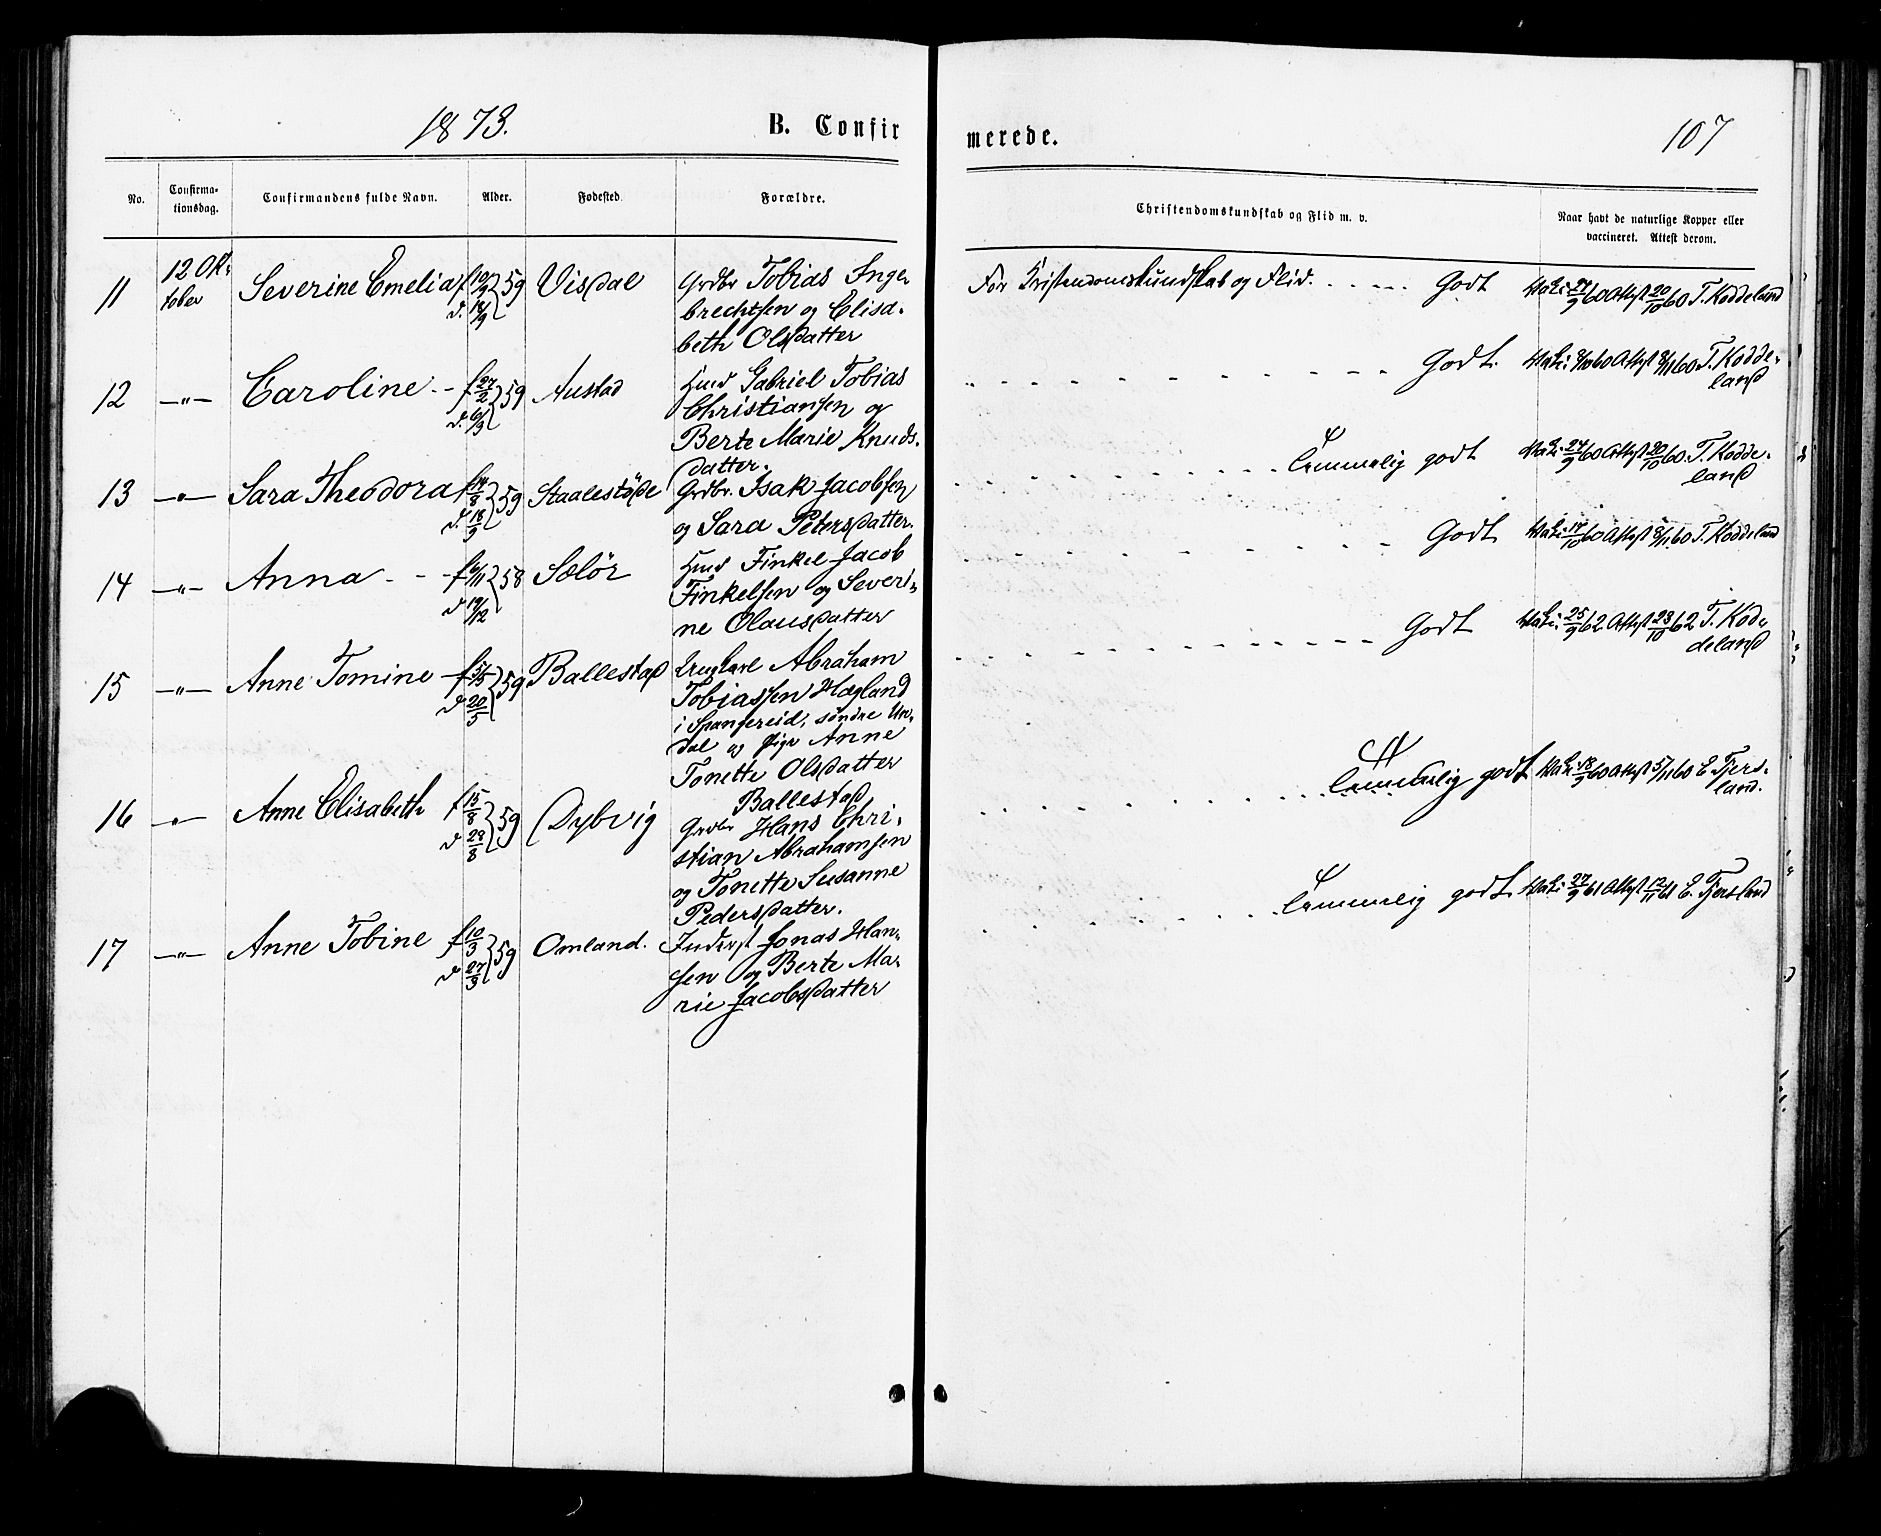 1873.
B. Confir
merede.
107
No.
Confirma-
tionsdag.
Confirmandens fulde Navn.
Alder.
Fødested.
Forældre.
Christendomskundskab og Flid m. v.
Naar havt de naturlige Kopper eller
vaccineret. Attest derom.
11 12 Ok- Severine Emelia f 10/9 59 Visdal Grdbr Tobias Inge-
tober d. 14/9 brechtsen og Elisa-
beth Olsdatter
For Kristendomskundskab og Flid. Godt Vak: 27/9 60 Attest 20/10 60 T. Koddeland
12 —"— Caroline f 27/2 59 Austad Husd Gabriel Tobias
d. 6/3 Christiansen og
Berte Marie Knuds-
datter.
Godt. Vak: 8/10 60 Attest 8/11 60 T. Kodde-
land
13 —"— Sara Theodora f 14/8 59 Staalestøde Grdbr. Isak Jacobsen
d. 18/9 og Sara Petersdatter.
Temmelig godt Vak: 27/9 60 Attest 20/10 60 T. Kodde-
land
14 —"— Anna f 6/11 58 Sælör Husd Finkel Jacob
d 19/12 Finkelsen og Severi-
ne Olausdatter
Godt Vak: 17/10 60 Attest 8/11 60 T. Koddeland
15 —"— Anne Tomine f 5/5 59 Ballestad Ungkarl Abraham
d 20/5 Tobiassen Hægland
i Spangereid, søndre Un-
dal og Pige Anne
Tonette Olsdatter
Ballestad
Godt Vak: 25/9 62 Attest 23/10 62 T. Kod-
deland
16 " Anne Elisabeth f 15/8 59 Dybvig Grdbr Hans Chri-
d 28/8 stian Abrahamsen
og Tonette Susanne
Pedersdatter.
Temmelig godt Vak: 18/9 60 Attest 5/11 60 E. Fjers-
land.
17 —"— Anne Tobine f 10/3 59 Omland. Inderst Jonas Han-
d 27/3 sen og Berte Ma-
rie Jacobsdatter
Temmelig godt Vak: 27/9 61 Attest 12/11 61 E. Fjersland